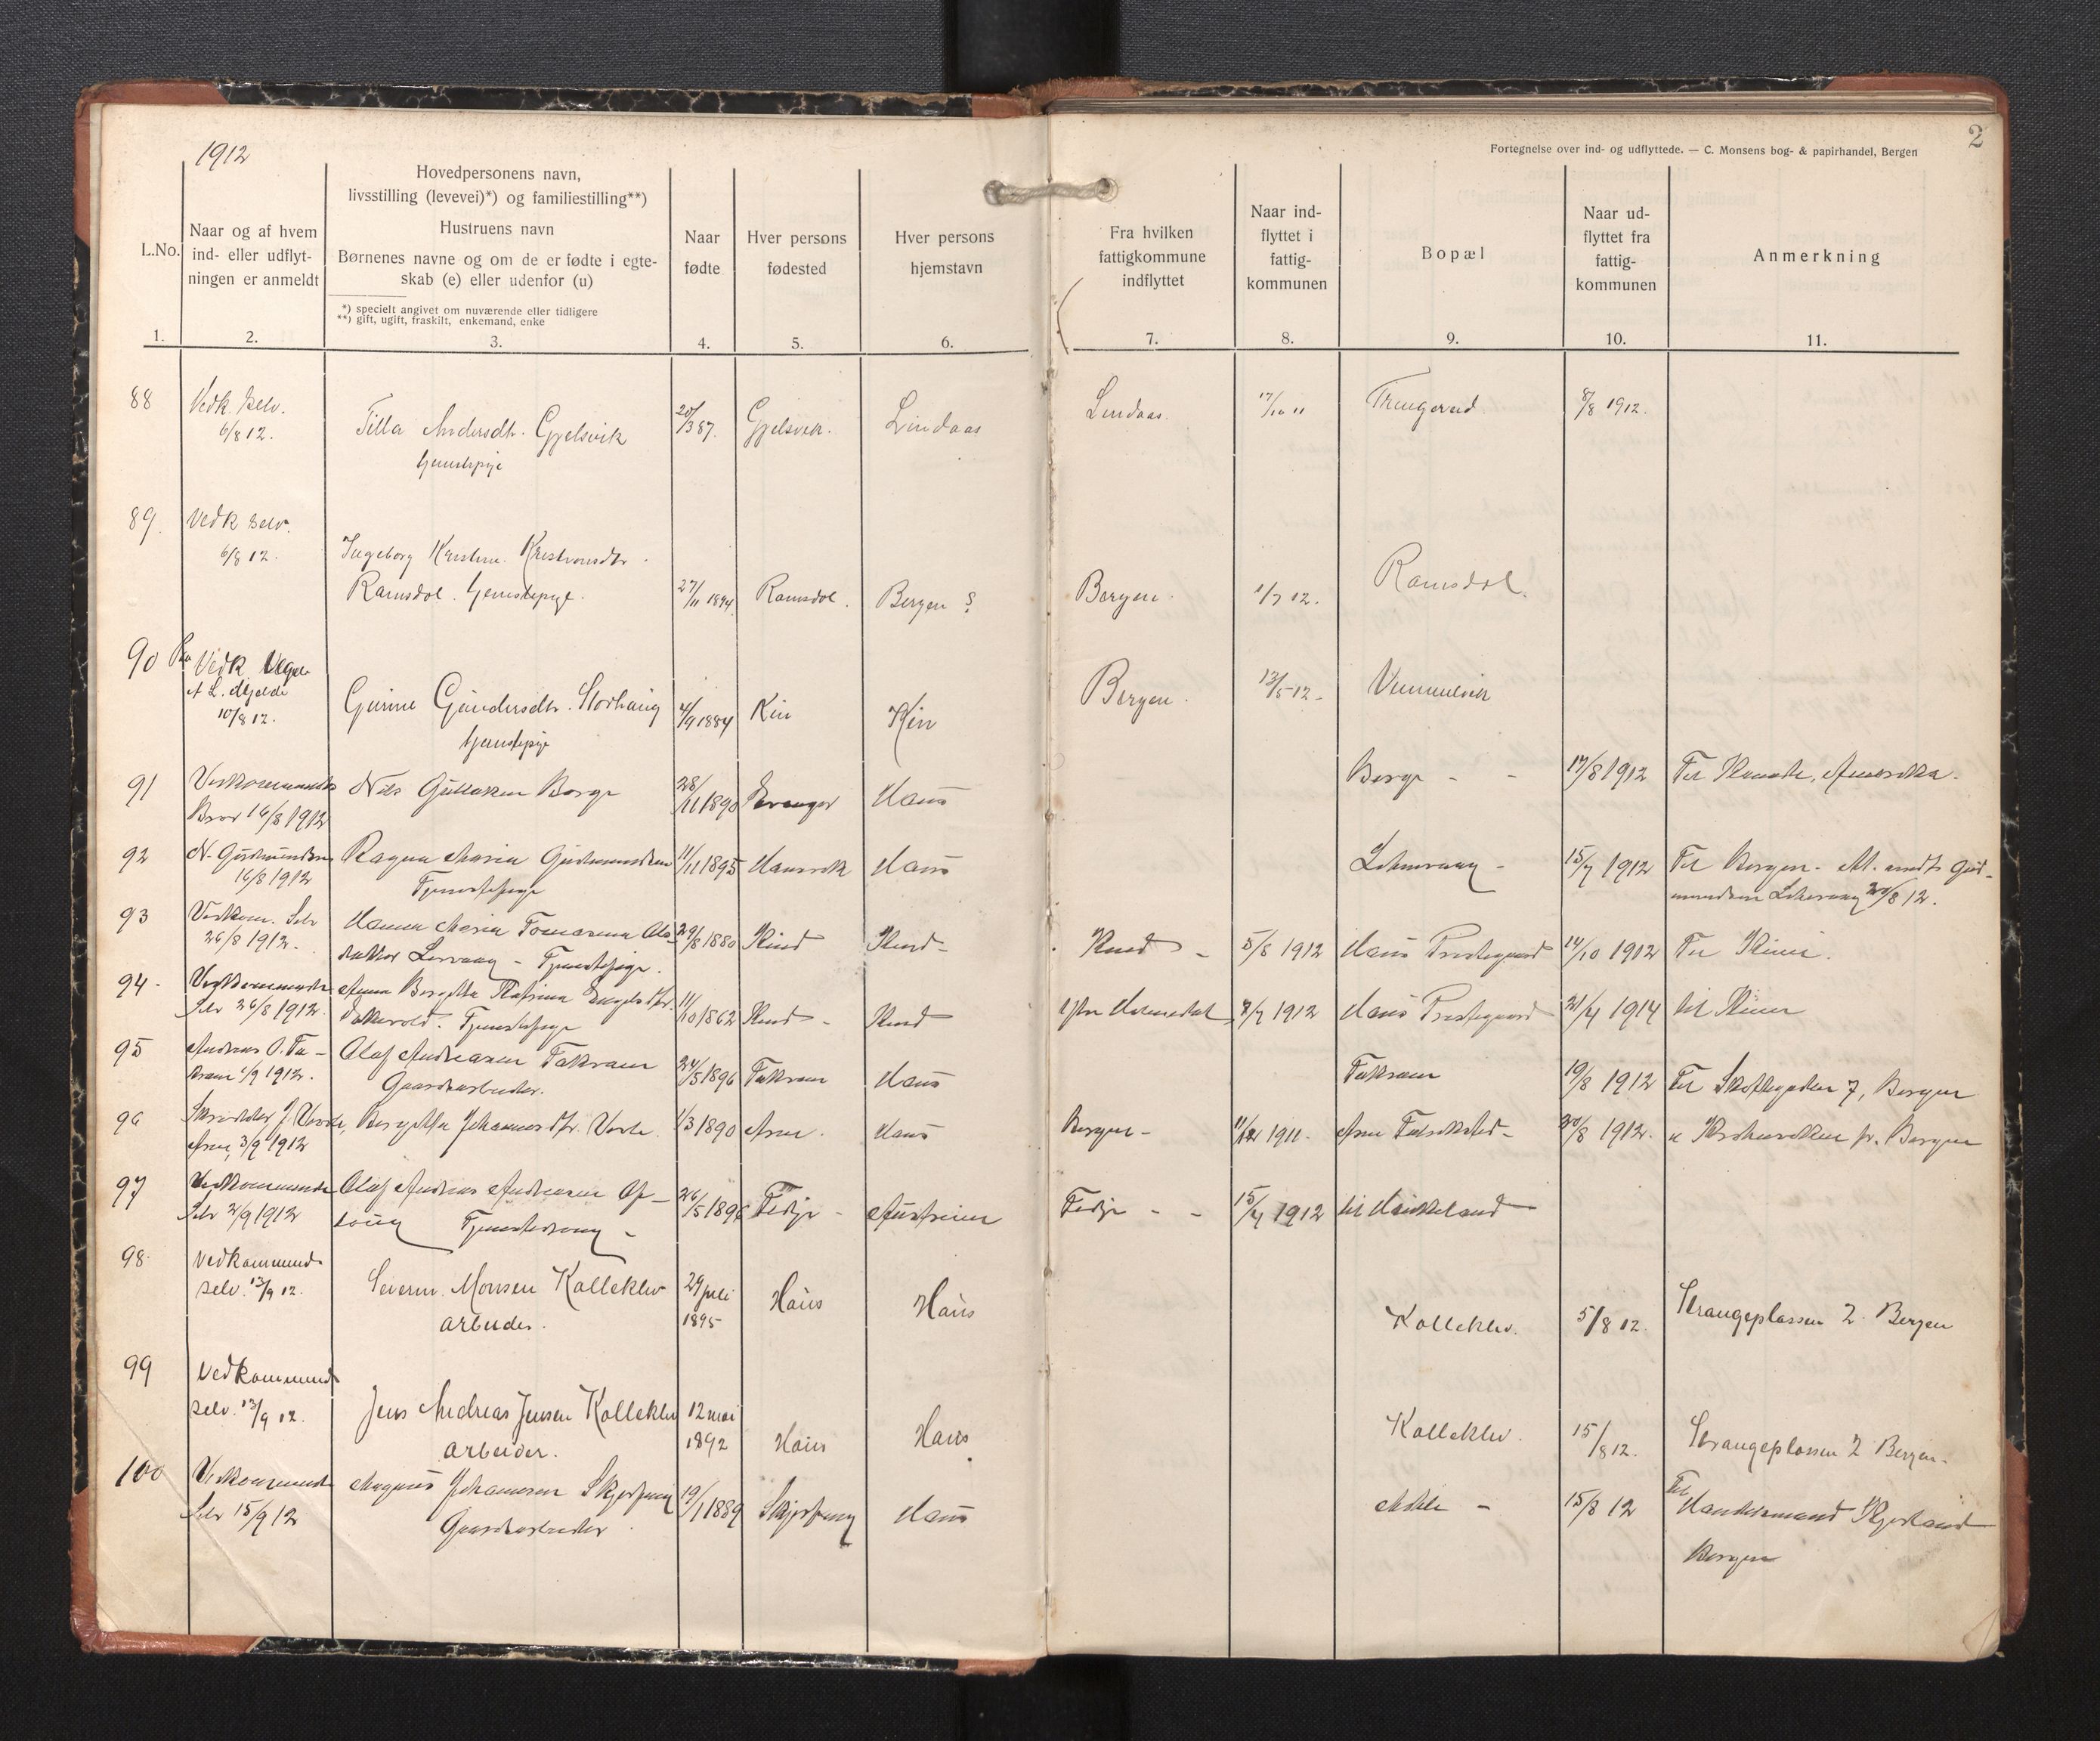 1912
2
Fortegnelse over ind- og udflyttede. — C. Monsens bog- & papirhandel, Bergen
L.No.
Naar og af hvem
ind- eller udflyt-
ningen er anmeldt
Hovedpersonens navn,
livsstilling (levevei)*) og familiestilling**)
Hustruens navn
Børnenes navne og om de er fødte i egte-
skab (e) eller udenfor (u)
*) specielt angivet om nuværende eller tidligere
**) gift, ugift, fraskilt, enkemand, enke
Naar
fødte
Hver persons
fødested
Hver persons
hjemstavn
Fra hvilken
fattigkommune
indflyttet
Naar ind-
flyttet i
fattig-
kommunen
Bopæl
Naar ud-
flyttet fra
fattig-
kommunen
Anmerkning
1. 2. 3. 4. 5. 6. 7. 8. 9. 10. 11.
88 Vedk. selv. Lindaas 17/10 11 8/8 1912.
6/8 12. Tilla Andersdtr. Gjelsvik 20/3 87. Gjelsvik. Lindaas
tjenestepige
89. Vedk selv.
6/8 12. Ingeborg Kristine Kristiansdtr.
Ramsdal. tjenestepige. 27/11 1894 Ramsdal. Bergen ? Bergen. 1/7 12. Ramsdal.
90 Vedk.
A L. Mjelde
10/8 12. Gurine Gundersdtr. Storhaug 4/9 1884 Kin Kin Bergen. 13/5 12.
tjenestepige
91 Vedkommendes Nils Gullaksen Borge 28/11 1890 Evanger Haus Borge - - 17/8 1912 Til Amerika.
Bror 16/8 1912
92 N. Gudmundsen Ragna Maria Gudmundsen 11/11 1895 Haus 15/7 1912 Til Bergen.
16/8 1912 Tjenestepige 20/8 12.
93 Vedkom. Selv Hanna Maria 29/8 1880 Kind Kind - 5/8 1912 Haus Prestegaard 14/10 1912 Til
26/8 1912. - Tjenestepige.
94 - Vedkommende Anna Bergitta Katrina 11/10 1862 7/7 1912 Haus Prestegaard 21/4 1914 til
Selv 26/8 1912. Tjenestepige
95 Andreas O. Tak- Olaf Andreasen Takvam 24/5 1896 Takvam Haus Takvam 19/8 1912 Til Skottegaden 7, Bergen
vam 1/9 1912. Gaardsarbeider.
96 Bergitha Johannesdtr. 1/3 1890 Arne. Haus Bergen - 11/12 1911. Arne Fabriksted - 30/8 1912. Bergen
Arne, 3/9 1912
97 Vedkommende Olaf Andreas Andreasen 26/5 1896 Fedje - Austreim Fedje - - 15/7 1912 til
Selv 2/9 1912 Tjenestedreng -
98. Vedkommend
selv. 13/9 12. Severin Monsen Kalleklev 29 juli 1895 Haus Haus Kalleklev. 5/8 12. Strangeplassen 2. Bergen
arbeider.
99 Vedkommend
selv. 13/9 12. Jens Andreas Jensen Kalleklev 12 mai 1892 Haus Haus Kalleklev. 15/8 12. Strangeplassen 2 Bergen.
arbeider.
100 Vedkommende Magnus Johannesen 19/1 1889 Haus 15/8 12 Til
Selv 15/9 12 Gaardsarbeider. Handelsmand
Bergen